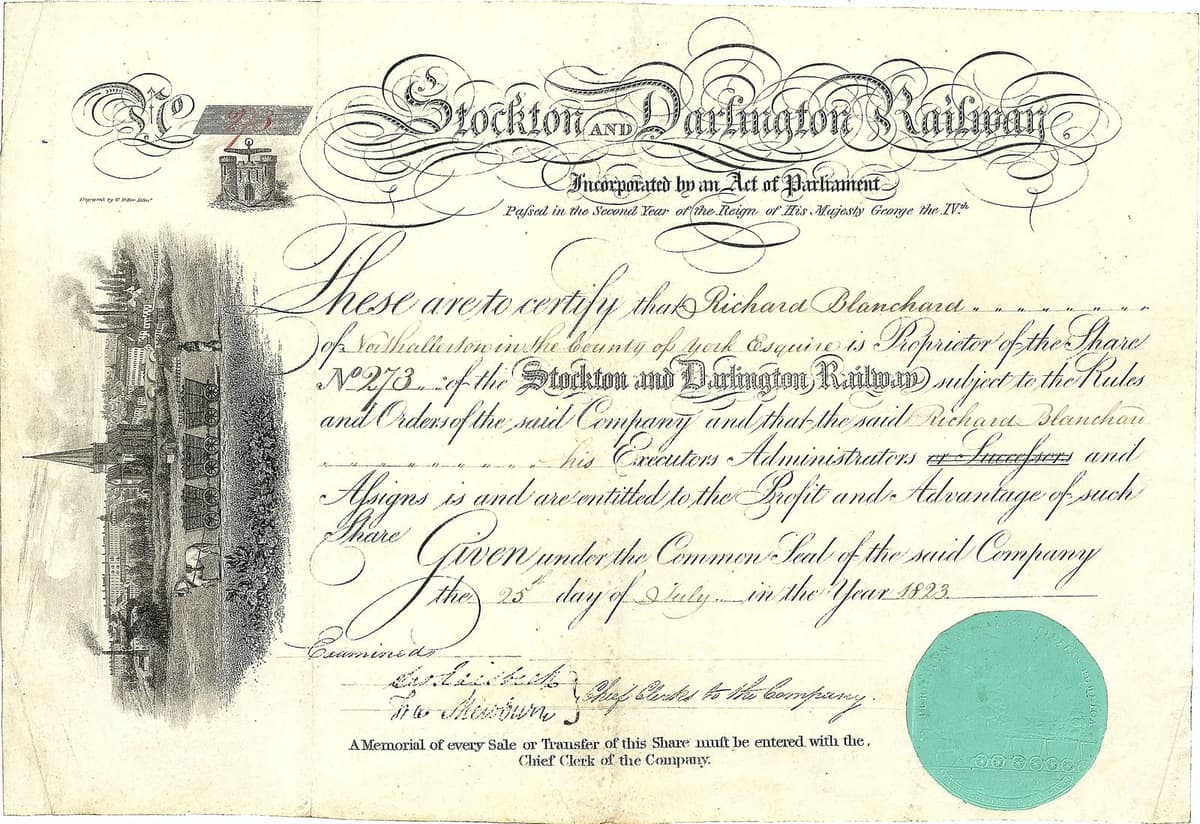 No 273
Stockton AND Darlington Railway
Incorporated by an Act of Parliament
Paſsed in the Second Year of the Reign of His Majesty George the IV.th
Engraved by W. Miller Edinr.
These are to certify that Richard Blanchard
of Northallerton in the County of York Esquire is Proprietor of the Share
No 273 of the Stockton and Darlington Railway subject to the Rules
and Orders of the said Company and that the said Richard Blanchard
his Executors Administrators or Succeſsors and
Aſsigns is and are entitled to the Profit and Advantage of such
Share
Given under the Common Seal of the said Company
the 25th day of July in the Year 1823
Examined
Chief Clerks to the Company.
A Memorial of every Sale or Transfer of this Share muſt be entered with the,
Chief Clerk of the Company.